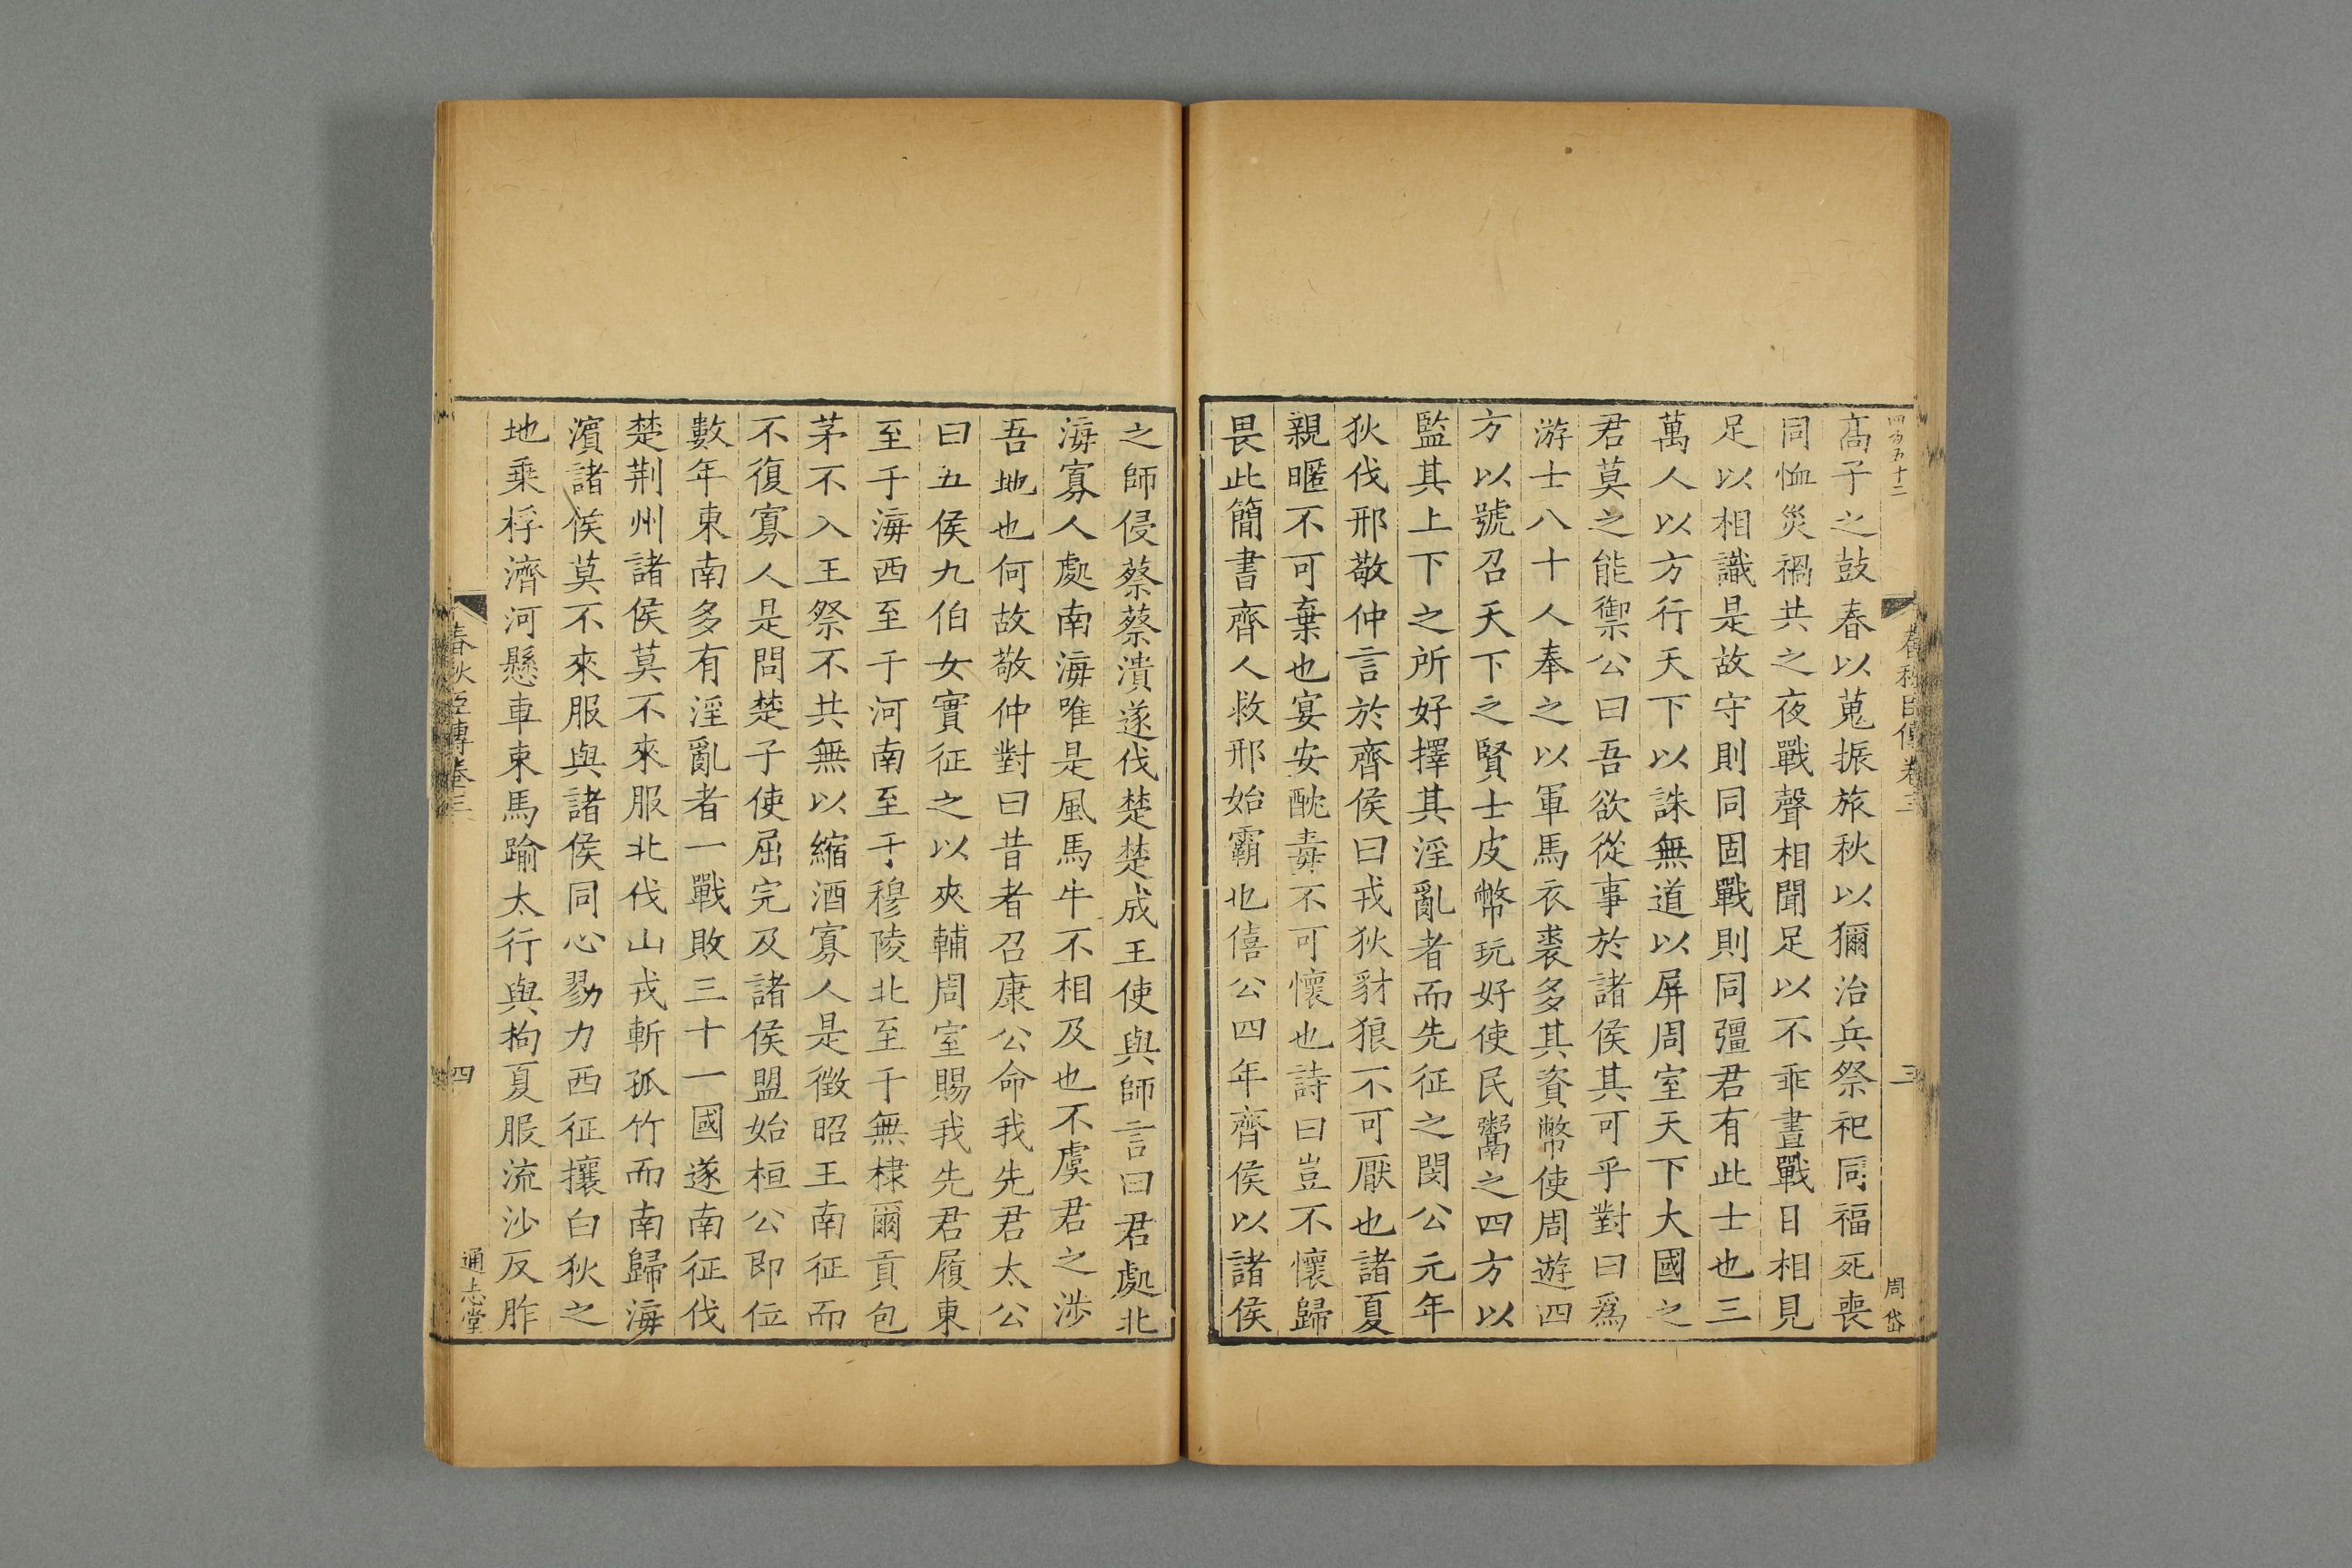 四百五十二
春秋臣傳卷三
三
周岱
高子之鼓春以蒐振旅秋以獮治兵祭祀同福死喪
同恤災禍共之夜戰聲相聞足以不乖晝戰目相見
足以相識是故守則同固戰則同彊君有此士也三
萬人以方行天下以誅無道以屏周室天下大國之
君莫之能禦公曰吾欲從事於諸侯其可乎對曰爲
游士八十人奉之以軍馬衣裘多其資幣使周遊四
方以號召天下之賢士皮幣玩好使民鬻之四方以
監其上下之所好擇其淫亂者而先征之閔公元年
狄伐邢敬仲言於齊侯曰戎狄豺狼不可厭也諸夏
親暱不可棄也宴安酖毒不可懷也詩曰豈不懷歸
畏此簡書齊人救邢始霸也僖公四年齊侯以諸侯
之師侵蔡蔡潰遂伐楚楚成王使與師言曰君處北
海寡人處南海唯是風馬牛不相及也不虞君之涉
吾地也何故敬仲對曰昔者召康公命我先君太公
曰五侯九伯女實征之以夾輔周室賜我先君履東
至于海西至于河南至于穆陵北至于無棣爾貢包
茅不入王祭不共無以縮酒寡人是徵昭王南征而
不復寡人是問楚子使屈完及諸侯盟始桓公即位
數年東南多有淫亂者一戰敗三十一國遂南征伐
楚荆州諸侯莫不來服北伐山戎斬孤竹而南歸海
濱諸侯莫不來服與諸侯同心勠力西征攘白狄之
地乗桴濟河懸車束馬踰太行與拘夏服流沙反胙
春秋臣傳卷三
四
通志堂